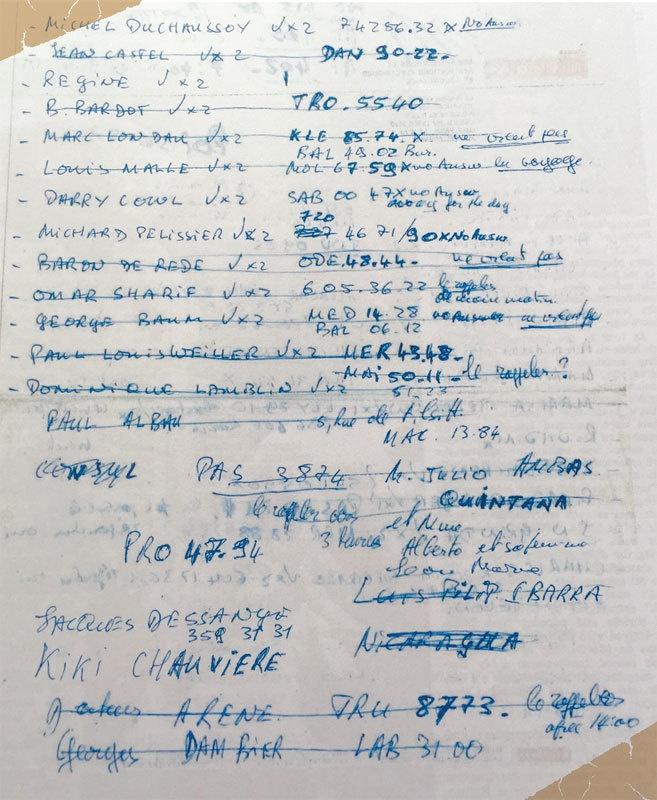 - MICHEL DUCHAUSSOY √x2 74286.32 X No Answ.
- JEAN CASTEL √x2 DAN 90-22-
- REGINE √x2
- B. BARDOT √x2 TRO. 5540
- MARC LONDAU √x2 KLE 85.74. X ne vient pas
BAL 49.02 Bur.
- LOUIS MALLE √x2 MOL 67 59 X no Answ en voyage.
- DARRY COWL √x2 SAB 00 47X no Answ
away for the day.
720
- MICHARD PELISSIER √x2 46 71/90X No Answ
- BARON DE REDE √x2 ODE.48.44- ne vient pas
- OMAR SHARIF √x2 605.36.22 le rappeler
demain matin.
- GEORGE BAUM √x2 MED 14.28 no Answer ne vient pas
BAL 06.12
- PAUL LOUIS WEILLER √x2 MER 43.48-
- MAI 50-11- le rappeler?
- DOMINIQUE LAMBLIN √x2 51-23
PAUL ALBOU 5, Rue de
MAC. 13-84
CONSUL PAS 3874 M. JULIO
QUINTANA
le rappeler dans et Mme
3 heures Alberto et sa femme
PRO 47.94 Leon Maria
Luis FILIP EBARRA
JACQUES DESSANGE
359 31 31
NICARAGUA
KIKI CHAUVIERE
ARENE TRU 8773. le rappeler
après 14:00
Georges DAMBIER LAB 31.00